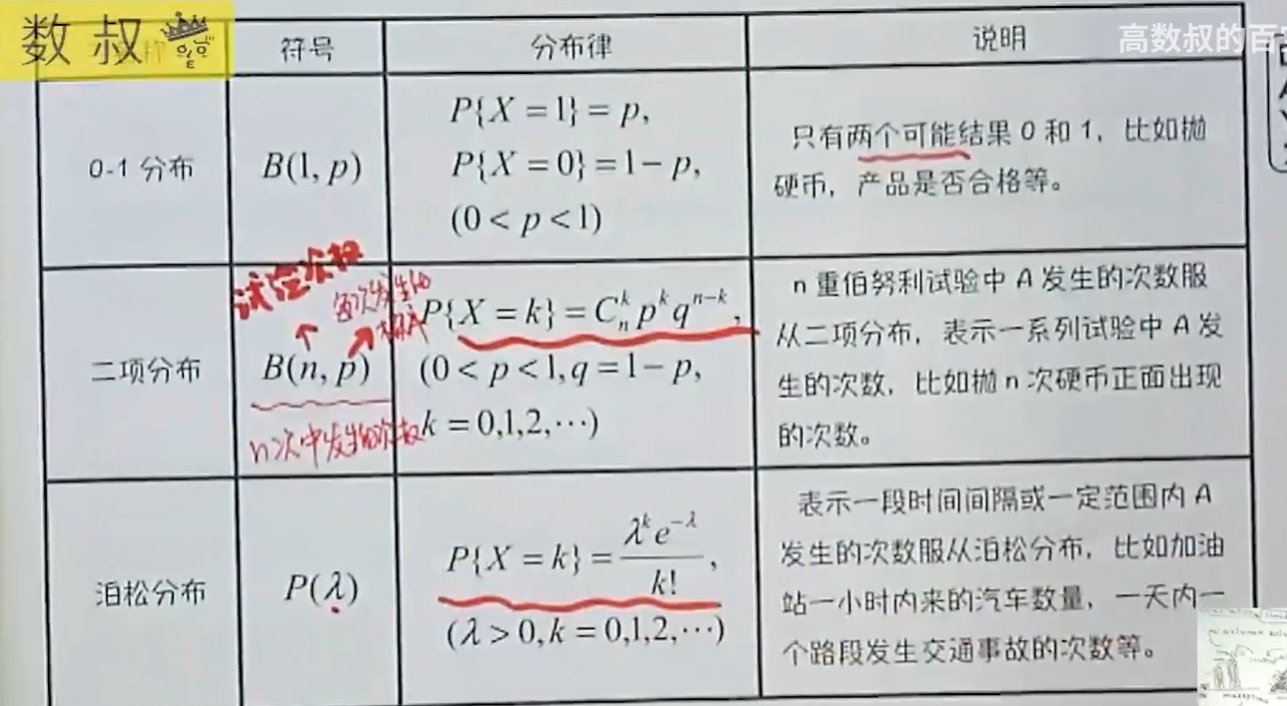 数叔
高数叔的百
符号
分布律
说明
0-1 分布
B(1, p)
P{X = 1} = p,
P{X = 0} = 1 − p,
(0 < p < 1)
只有两个可能结果 0 和 1，比如抛
硬币，产品是否合格等。
试验次数
每次发生的
概率
二项分布
B(n, p)
n次中发生的次数
P{X = k} = C_n^k p^k q^{n−k},
(0 < p < 1, q = 1 − p,
k = 0,1,2,⋯)
n 重伯努利试验中 A 发生的次数服
从二项分布，表示一系列试验中 A 发
生的次数，比如抛 n 次硬币正面出现
的次数。
泊松分布
P(λ)
P{X = k} = λ^k e^{−λ} / k!,
(λ > 0, k = 0,1,2,⋯)
表示一段时间间隔或一定范围内 A
发生的次数服从泊松分布，比如加油
站一小时内来的汽车数量，一天内一
个路段发生交通事故的次数等。